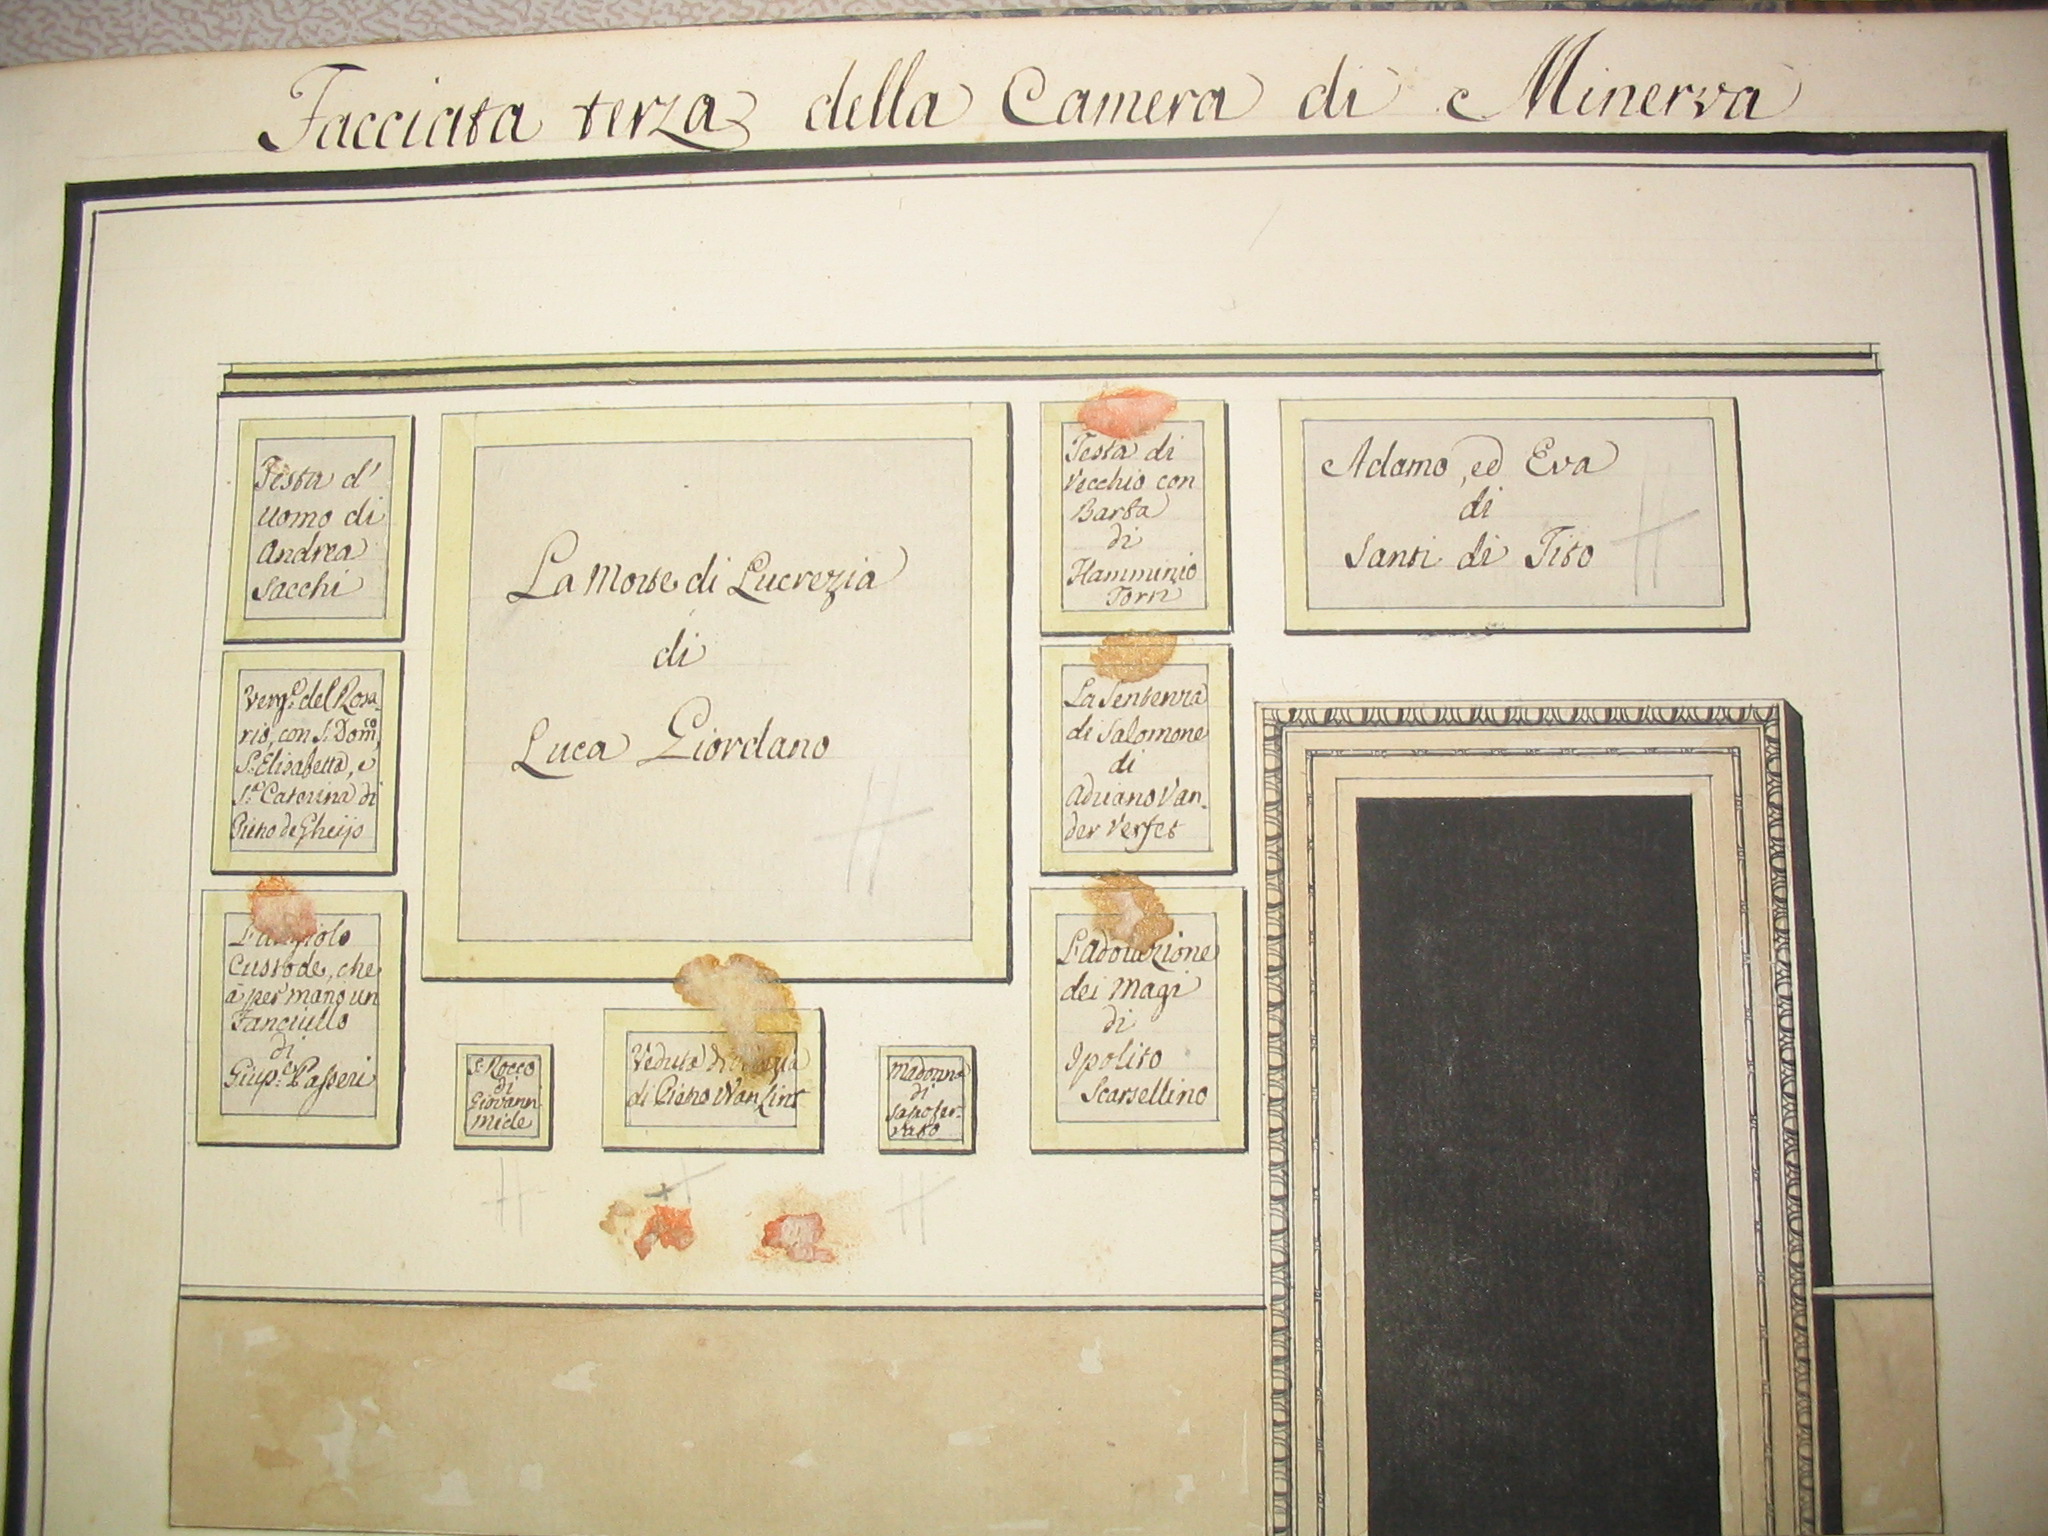 Facciata terza della Camera di Minerva
Testa d'
uomo di
Andrea
Sacchi
Verg.e del Rosa-
rio, con S. Dom.co,
S. Elisabetta, e
S.a Caterina di
Pietro de Gheijs
L'Angiolo
Custode, che
à per mano un
Fanciullo
di
Giup.e Passeri
La Morte di Lucrezia
di
Luca Giordano
S. Rocco
di
Giovann
Miele
Veduta di
di Pietro Wan Lint
Madonna
di
Sasofer-
rato
Testa di
Vecchio con
Barba
di
Flamminio
Torri
La Sentenza
di Salomone
di
Adriano Van-
der Verfet
L'Adorazione
dei Magi
di
Ipolito
Scarsellino
Adamo, ed Eva
di
Santi di Tito